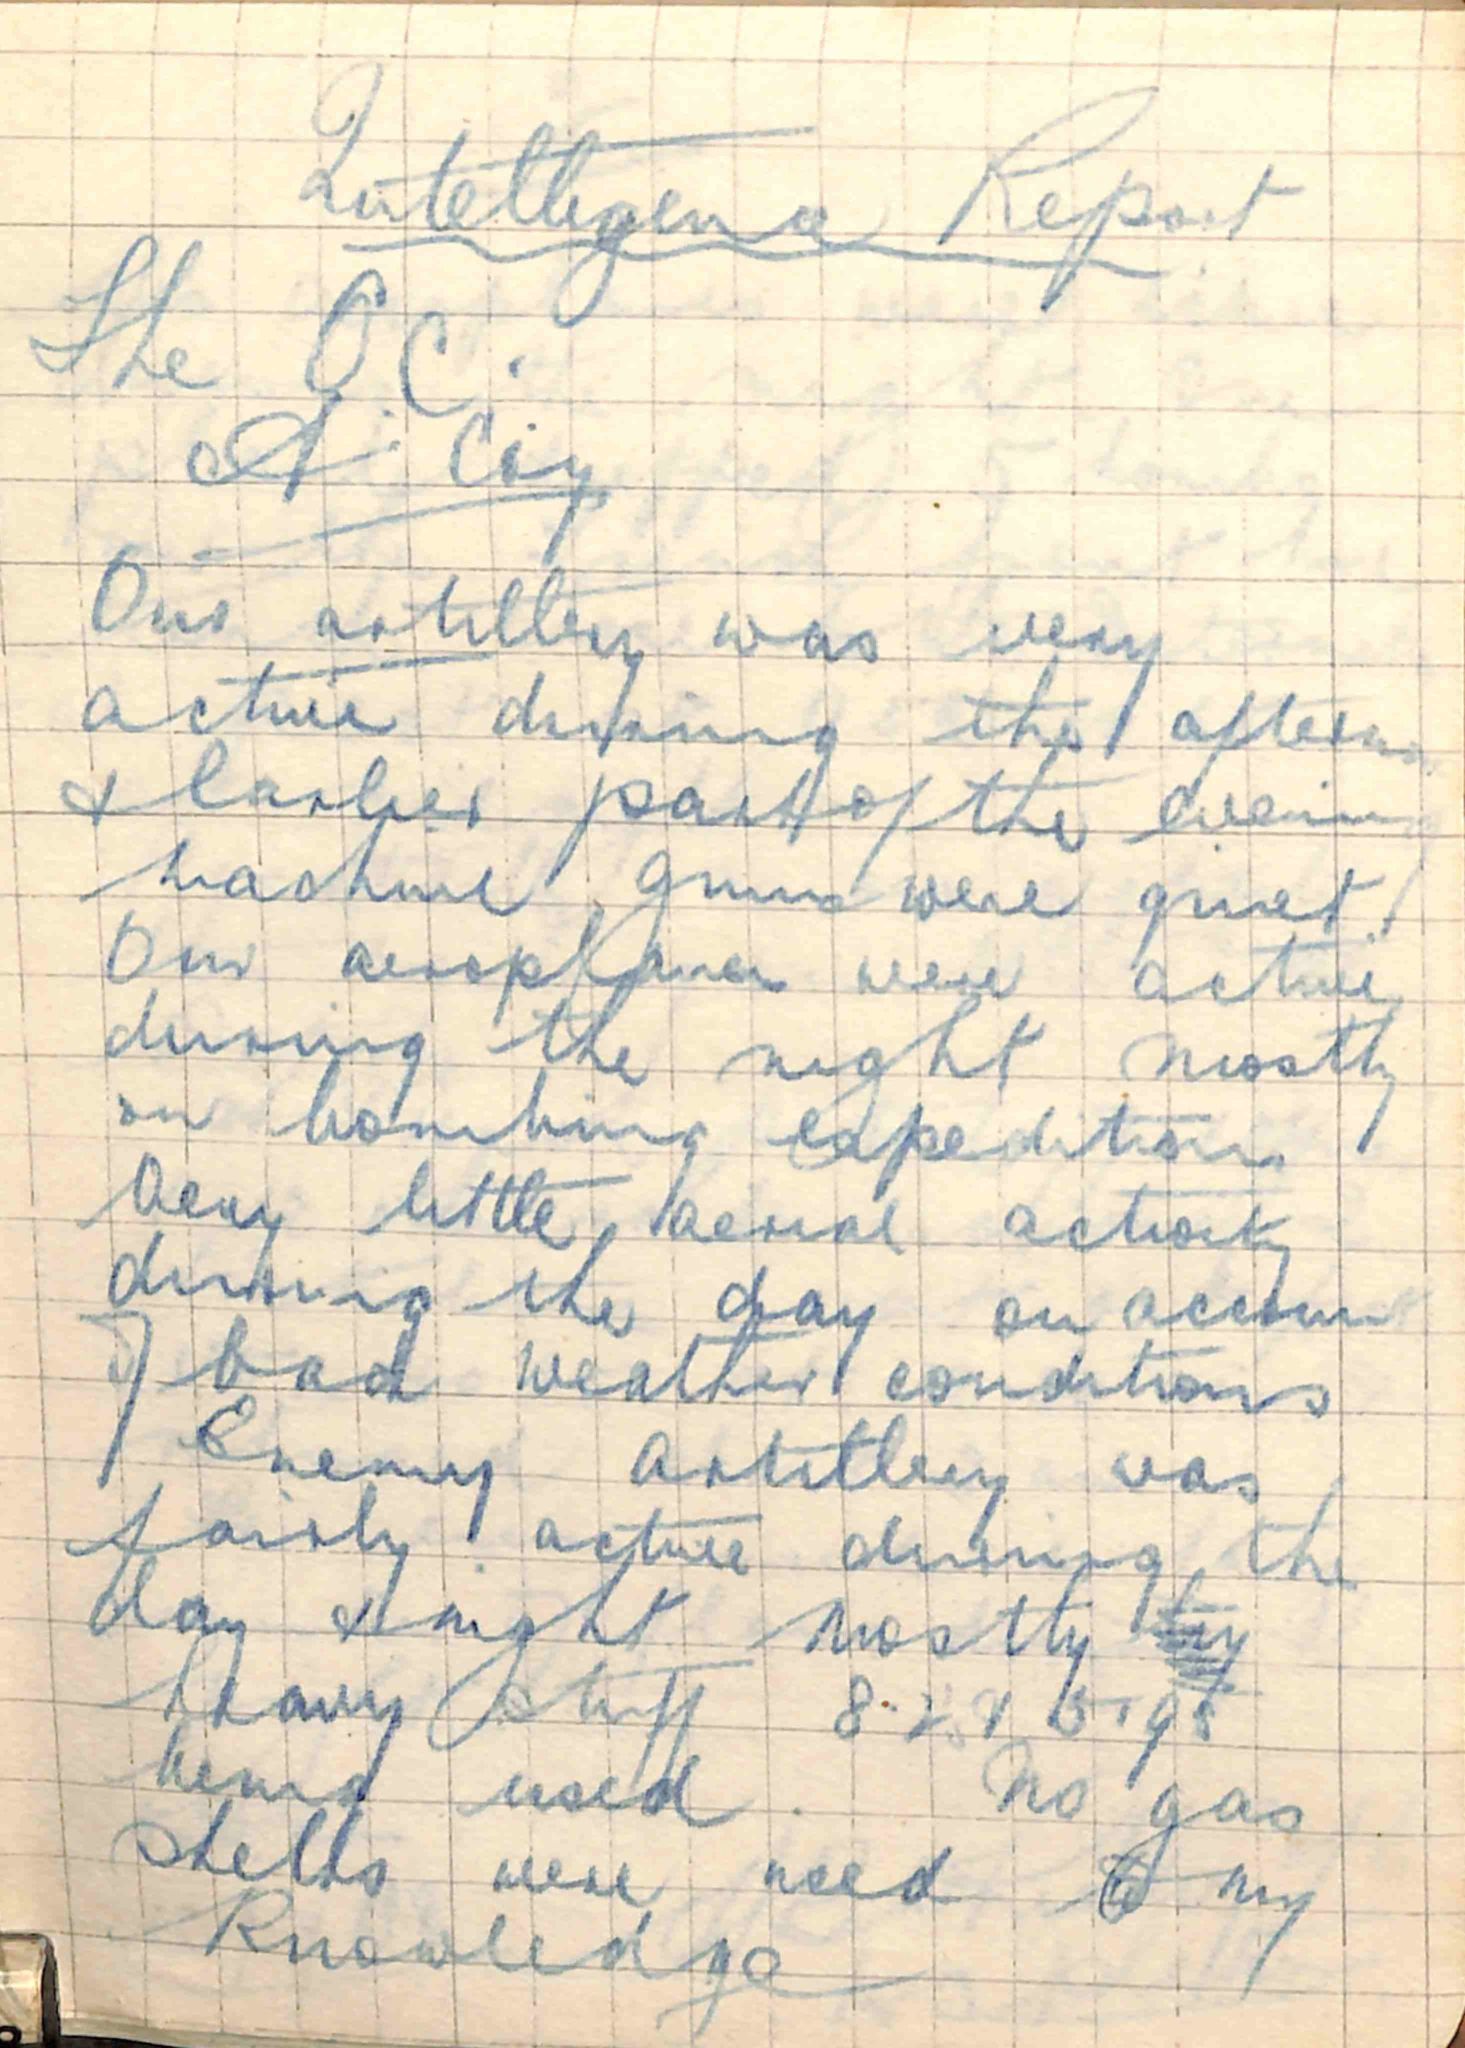 Intelligence Report
The O.C.
A. Coy
Our artillery was very
active during the aftern
& Earlier part of the evening
machine guns were quiet
Our aeroplanes were active
during the night mostly
on bombing expeditions
Very little aerial activity
during the day on accoun
of bad weather conditions
Enemy artillery was
fairly active during the
day & night mostly
heavy stuff 8.2 & 5.9s
being used. No gas
shells were used to my
Knowledge